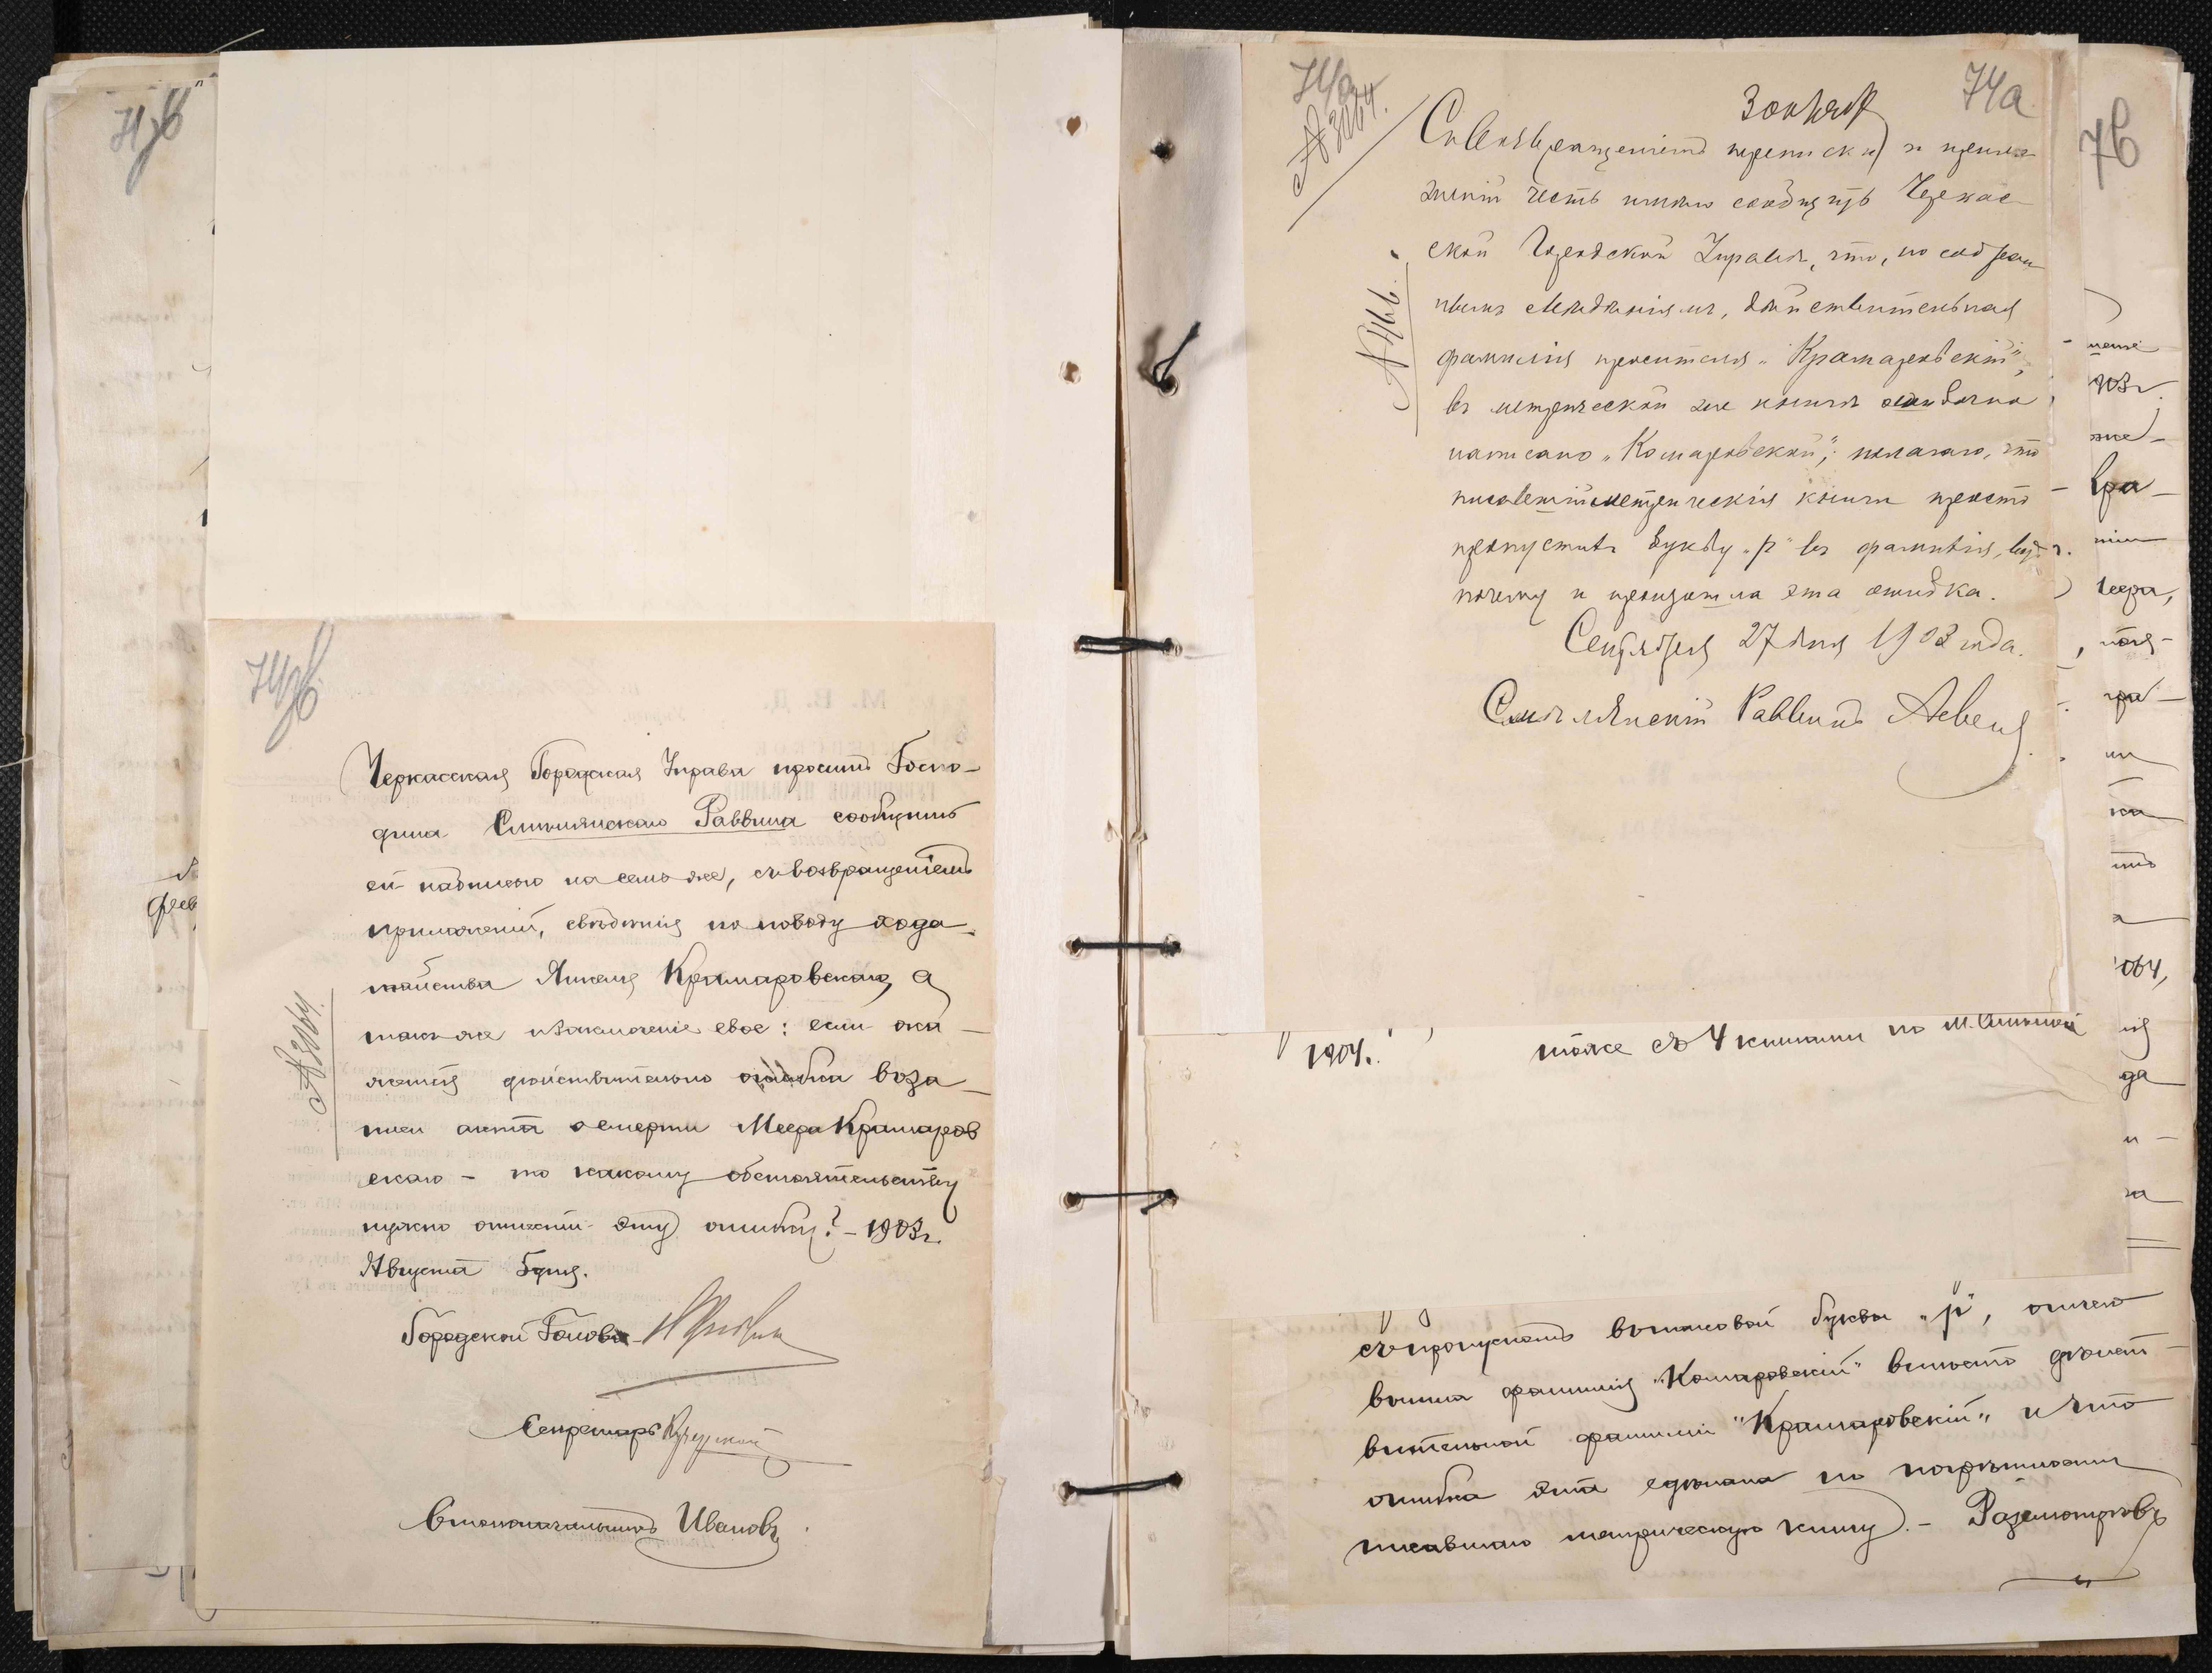 74б
Черкасская Городская Управа проситъ Госпо-
дина Смѣлянскаго Раввина сообщить
ей надписью на семъ же, съ возвращеніемъ
приложеній, свѣдѣнія по поводу хода-
тайства Янкеля Крамаровскаго, а
также и заключеніе свое: если ока-
жется дѣйствительно ошибка въ за-
писи акта о смерти Меера Крамаров
скаго - то какому обстоятельству
нужно отнести эту ошибку? - 1903 г.
Августа 5 дня.
Городской Голова
Секретарь
Столоначальникъ Ивановъ
№ 3064.
74а
№ 3064.
Съ возвращеніемъ переписки и прило
женій честь имѣю сообщить Черкас-
ской Городской Управѣ, что, по собран
нымъ свѣдѣніямъ, дѣйствительная
фамилія просителя "Крамаровскій",
въ метрической же книгѣ ошибочно
написано "Комаровскій"; полагаю, что
писавшій метрическія книги просто
пропустилъ букву "р" въ фамиліи,
почему и произошла эта ошибка.
Сентября 27 дня 1903 года.
Смѣлянскій Раввинъ
№ 466.
1904.
тоже съ 4 книгами по м. Смѣлой
съ пропускомъ въ таковой буквы "р", отчего
вышла фамилія "Комаровскій" вмѣсто дѣйст
вительной фамиліи "Крамаровскій" и что
ошибка эта сдѣлана по погрѣшности
писавшаго метрическую книгу. -
76
903 г.
же-
вра-
Меера,
гра-
ка
064,
да